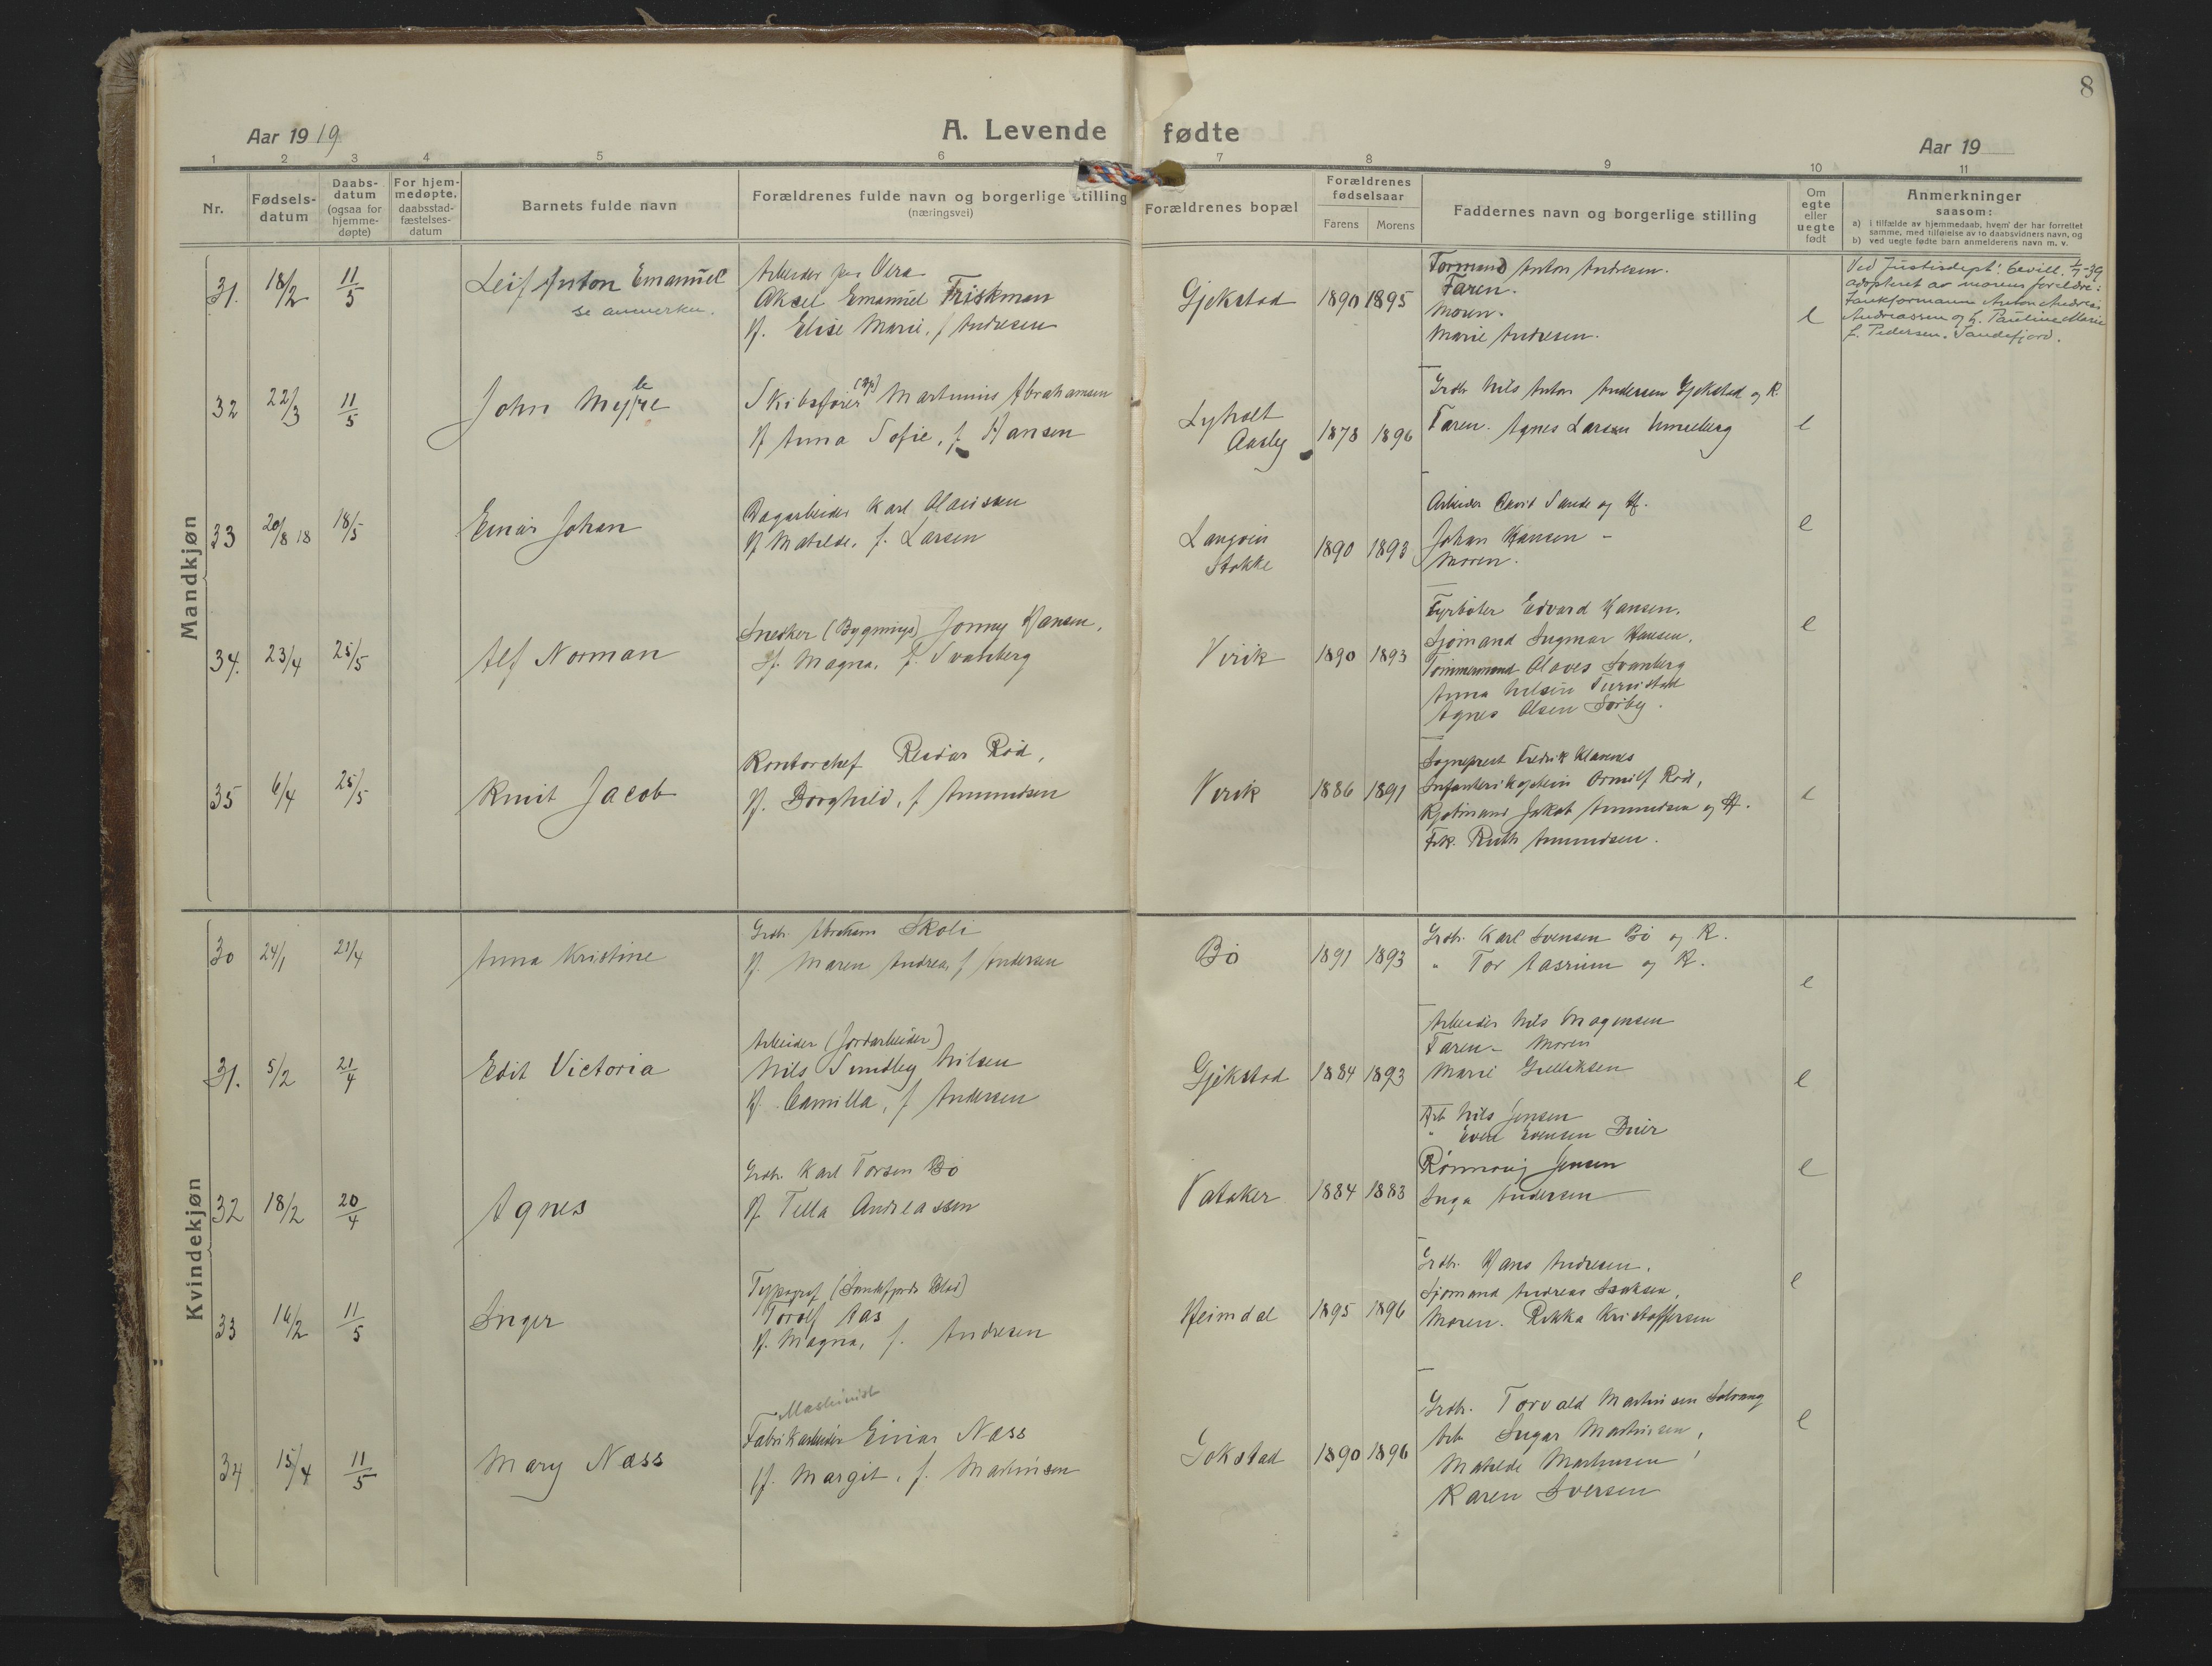 8
Aar 1919
A. Levende fødte
Aar 19
1 2 3 4 5 6 7 8 9 10 11
Nr.
Fødsels-
datum
Daabs-
datum
(ogsaa for
hjemme-
døpte)
For hjem-
medøpte,
daabsstad-
fæstelses-
datum
Barnets fulde navn
Forældrenes fulde navn og borgerlige stilling
(næringsvei)
Forældrenes bopæl
Forældrenes
fødselsaar
Farens Morens
Faddernes navn og borgerlige stilling
Om
egte
eller
uegte
født
Anmerkninger
saasom:
a) i tilfælde av hjemmedaab, hvem der har forrettet
samme, med tilføielse av to daabsvidners navn, og
b) ved uegte fødte barn anmelderens navn m. v.
Mandkjøn
31. 18/2 11/5 Leif Anton Emanuel
se anmerkn.
Arbeider paa Vera
Aksel Emanuel Friskman
H. Elise Marie, f Andresen
Gjekstad 1890 1895
Formand Anton Andresen.
Faren.
Moren.
Marie Andresen.
e
Ved Justisdept! bevill. 1/7-39
adopteret av morens foreldre:
Tankformann Anton Andreas
Andreassen og h. Pauline Marie
f. Pedersen, Sandefjord.
32 22/3 11/5 John Myhre
Skibsfører Martinius Abrahamsen
H Anna Sofie, f Hansen
Lyholt
Aasly
1878 1896
Grdbr Nils Anton Andersen Gjekstad og K.
Faren. Agnes Larsen Unneberg
e
33 20/8 18 18/5 Einar Johan
Dagarbeider Karl Olaussen
H Matilde, f. Larsen
Langvein
Stokke
1890 1893
Arbeider David Sande og H.
Johan Hansen -
Moren.
e
34. 23/4 25/5 Alf Norman
Snekker (Bygnings) Jonny Hansen,
H. Magna, f. Svanberg
Virik 1890 1893
Fyrbøter Edvard Hansen,
Sjømand Ingmar Hansen,
Tømmermand Olaves Svanberg
Anna Nilsen
Agnes Olsen Sørby.
e
35 6/4 25/5 Knut Jacob
Kontorchef Reidar Rød,
H. Borghild, f Amundsen
Virik 1886 1891
Sogneprest Fredrik Klaveness
Infanterikaptein Ormulf Rød,
Kjøbmand Jakob Amundsen og H.
Frk. Ruth Amundsen.
e
Kvindekjøn
30 24/1 21/4 Anna Kristine
Grdbr. Abraham Skoli
H. Maren Andrea, f Andersen
Bø 1891 1893
Grdbr. Karl Svensen Bø og K.
" Tor Aasrum og K.
e
31. 5/2 21/4 Edit Victoria
Arbeider (Jordarbeider)
Nils Sundby Nilsen
H. Camilla, f Andersen
Gjekstad 1884 1893
Arbeider Nils Mogensen
Faren - Moren
Marie Gulliksen
e
32 18/2 20/4 Agnes
Grdbr. Karl Torsen Bø
H Tella Andreassen
Pataker 1884 1883
Arb Nils Jensen
" Even Evensen
Rønnaug Jensen
Inga Andersen
e
33 16/2 11/5 Inger
Typograf (Sandefjords Blad)
Torolf Aas
H. Magna, f. Andresen
Heimdal 1895 1896
Grdbr. Hans Andresen,
Sjømand Andreas Isaksen,
Moren. Rikka Kristoffersen
e
34 15/4 11/5 Mary Næss
Maskinist
Fabrikarbeider Einar Næss
H. Margit, f. Martinsen
Gokstad 1890 1896
Grdbr. Torvald Martinsen Solvang
Arb Ingar Martinsen,
Matilde Martinsen,
Karen Iversen
e